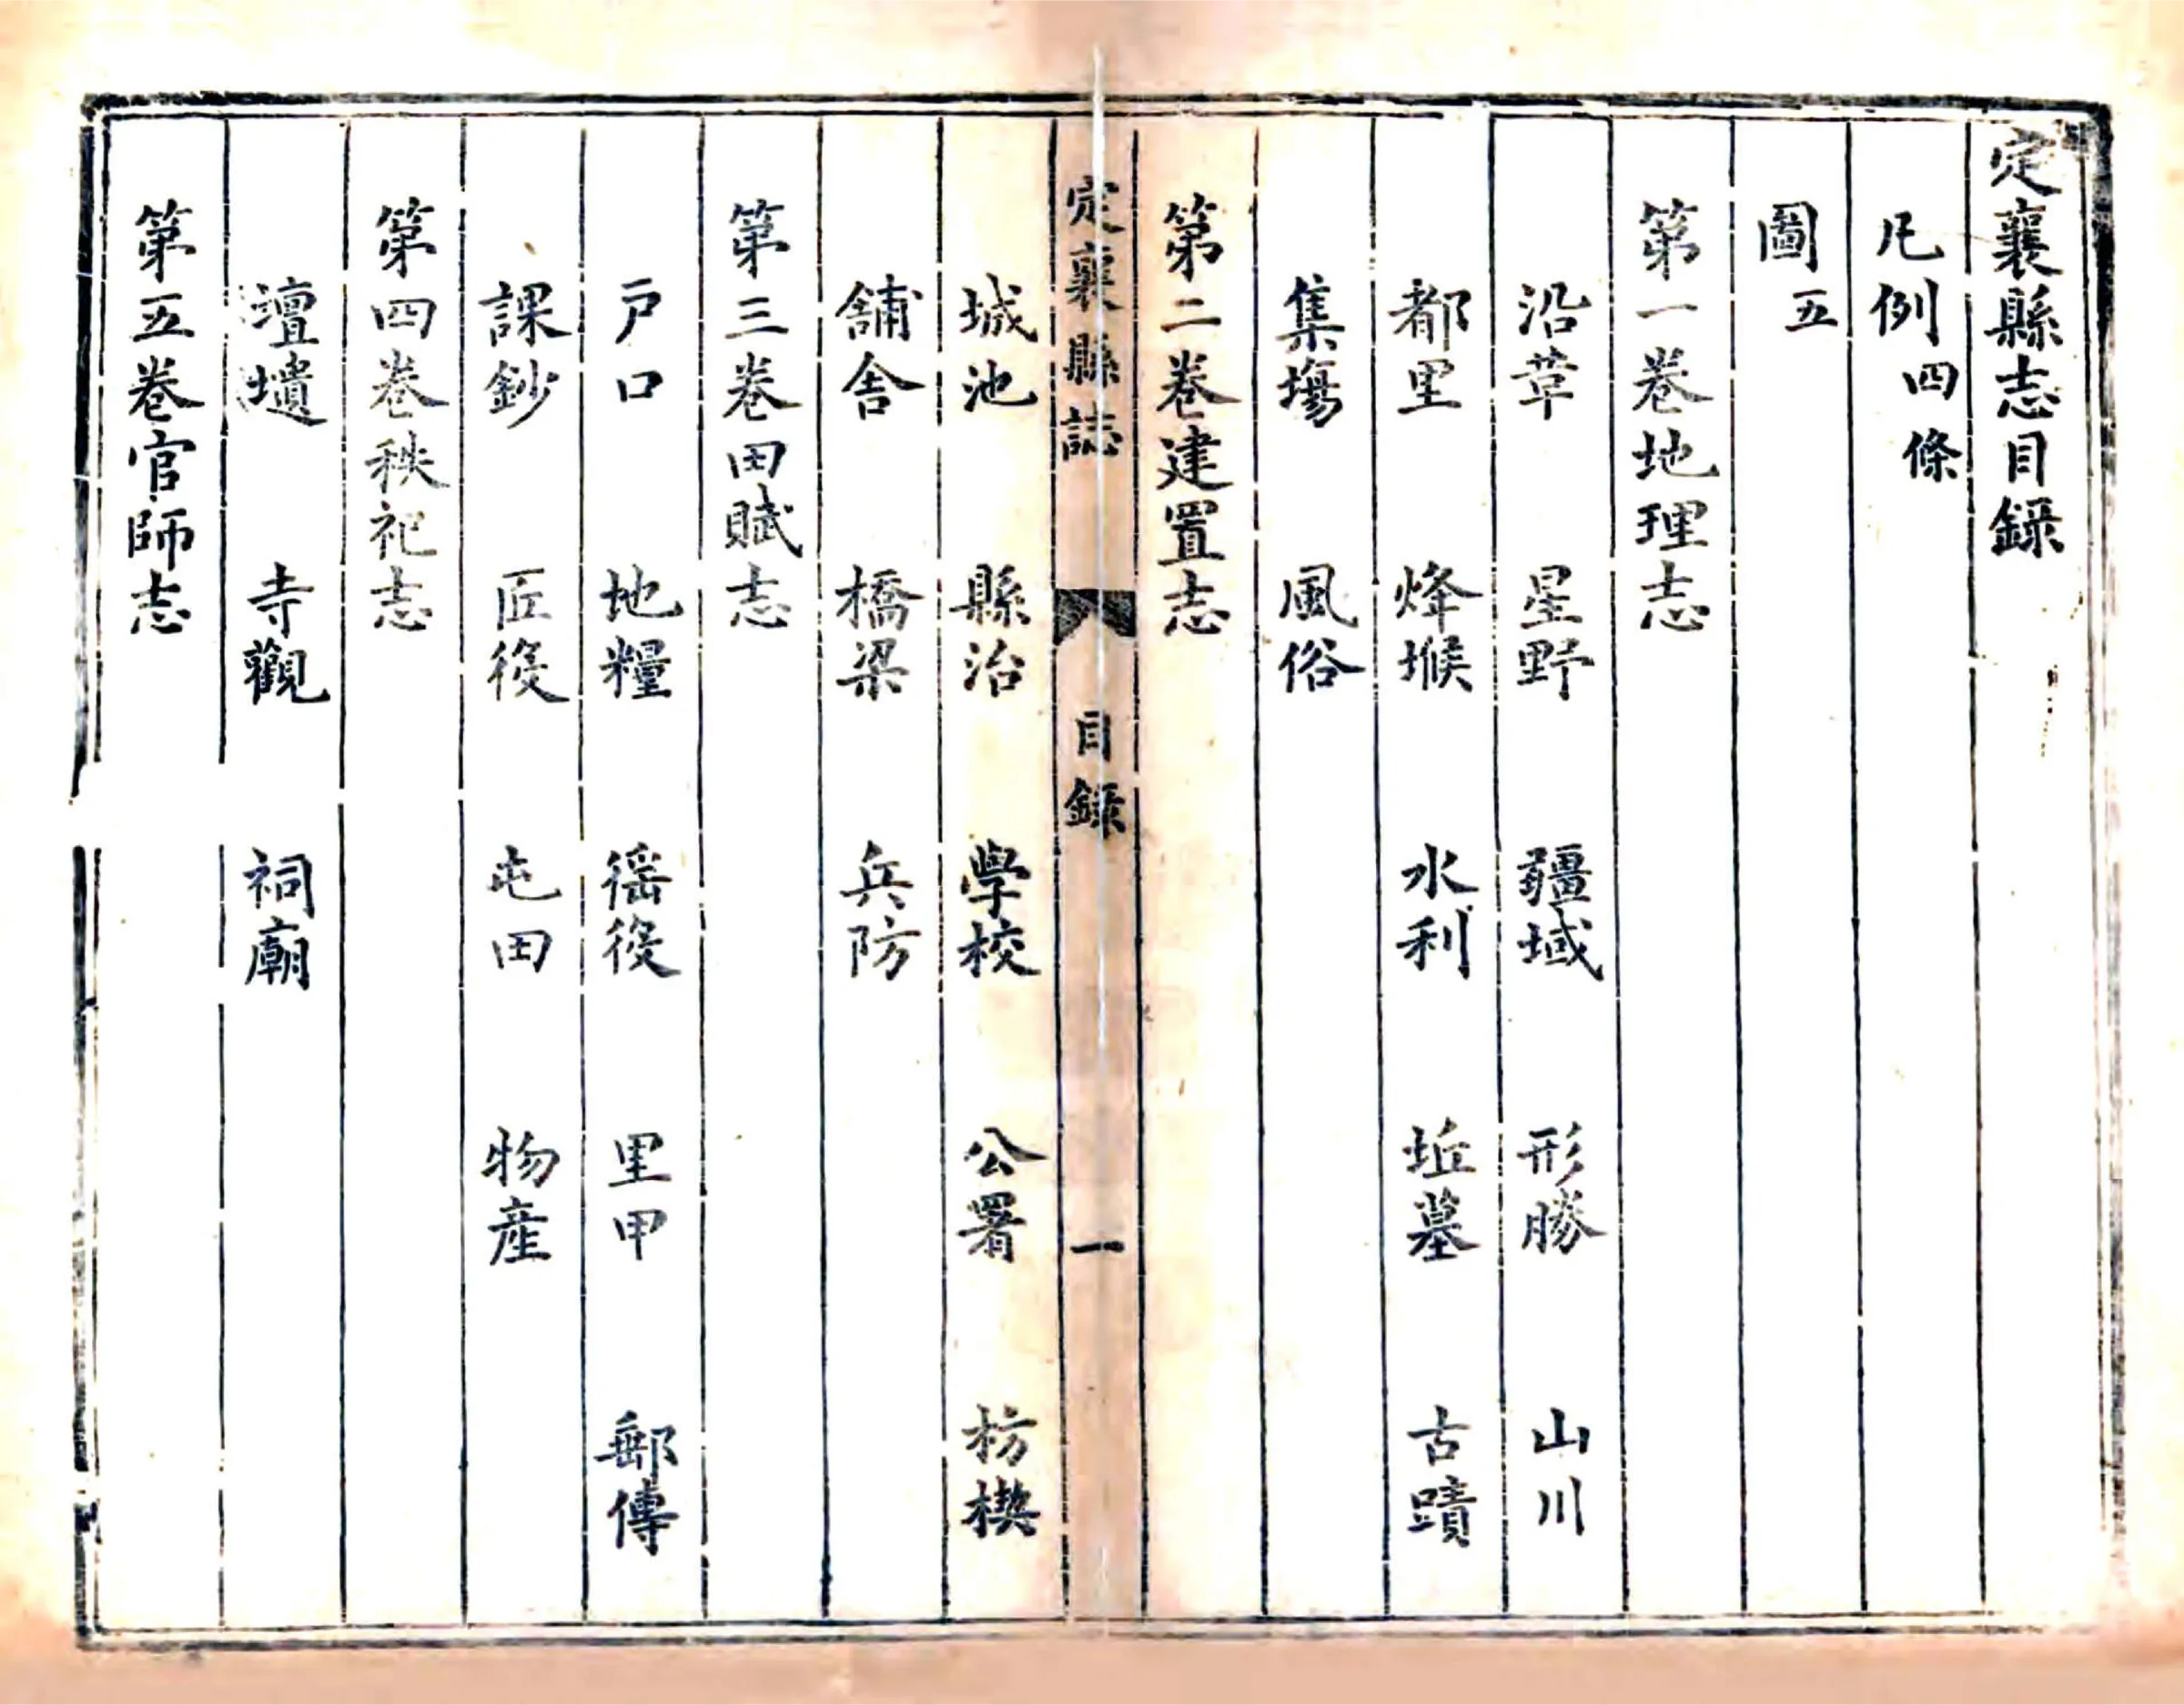 定襄縣志目錄
凡例四條
圖五
第一卷地理志
沿革 星野 疆域 形勝 山川
都里 烽堠 水利 坵墓 古蹟
集塲 風俗
第二卷建置志
定襄縣誌 目錄 一
城池 縣治 學校 公署 枋楔
舖舍 橋梁 兵防
第三卷田賦志
戶口 地糧 徭役 里甲 郵傳
課鈔 匠役 屯田 物產
第四卷秩祀志
壇壝 寺觀 祠廟
第五卷官師志